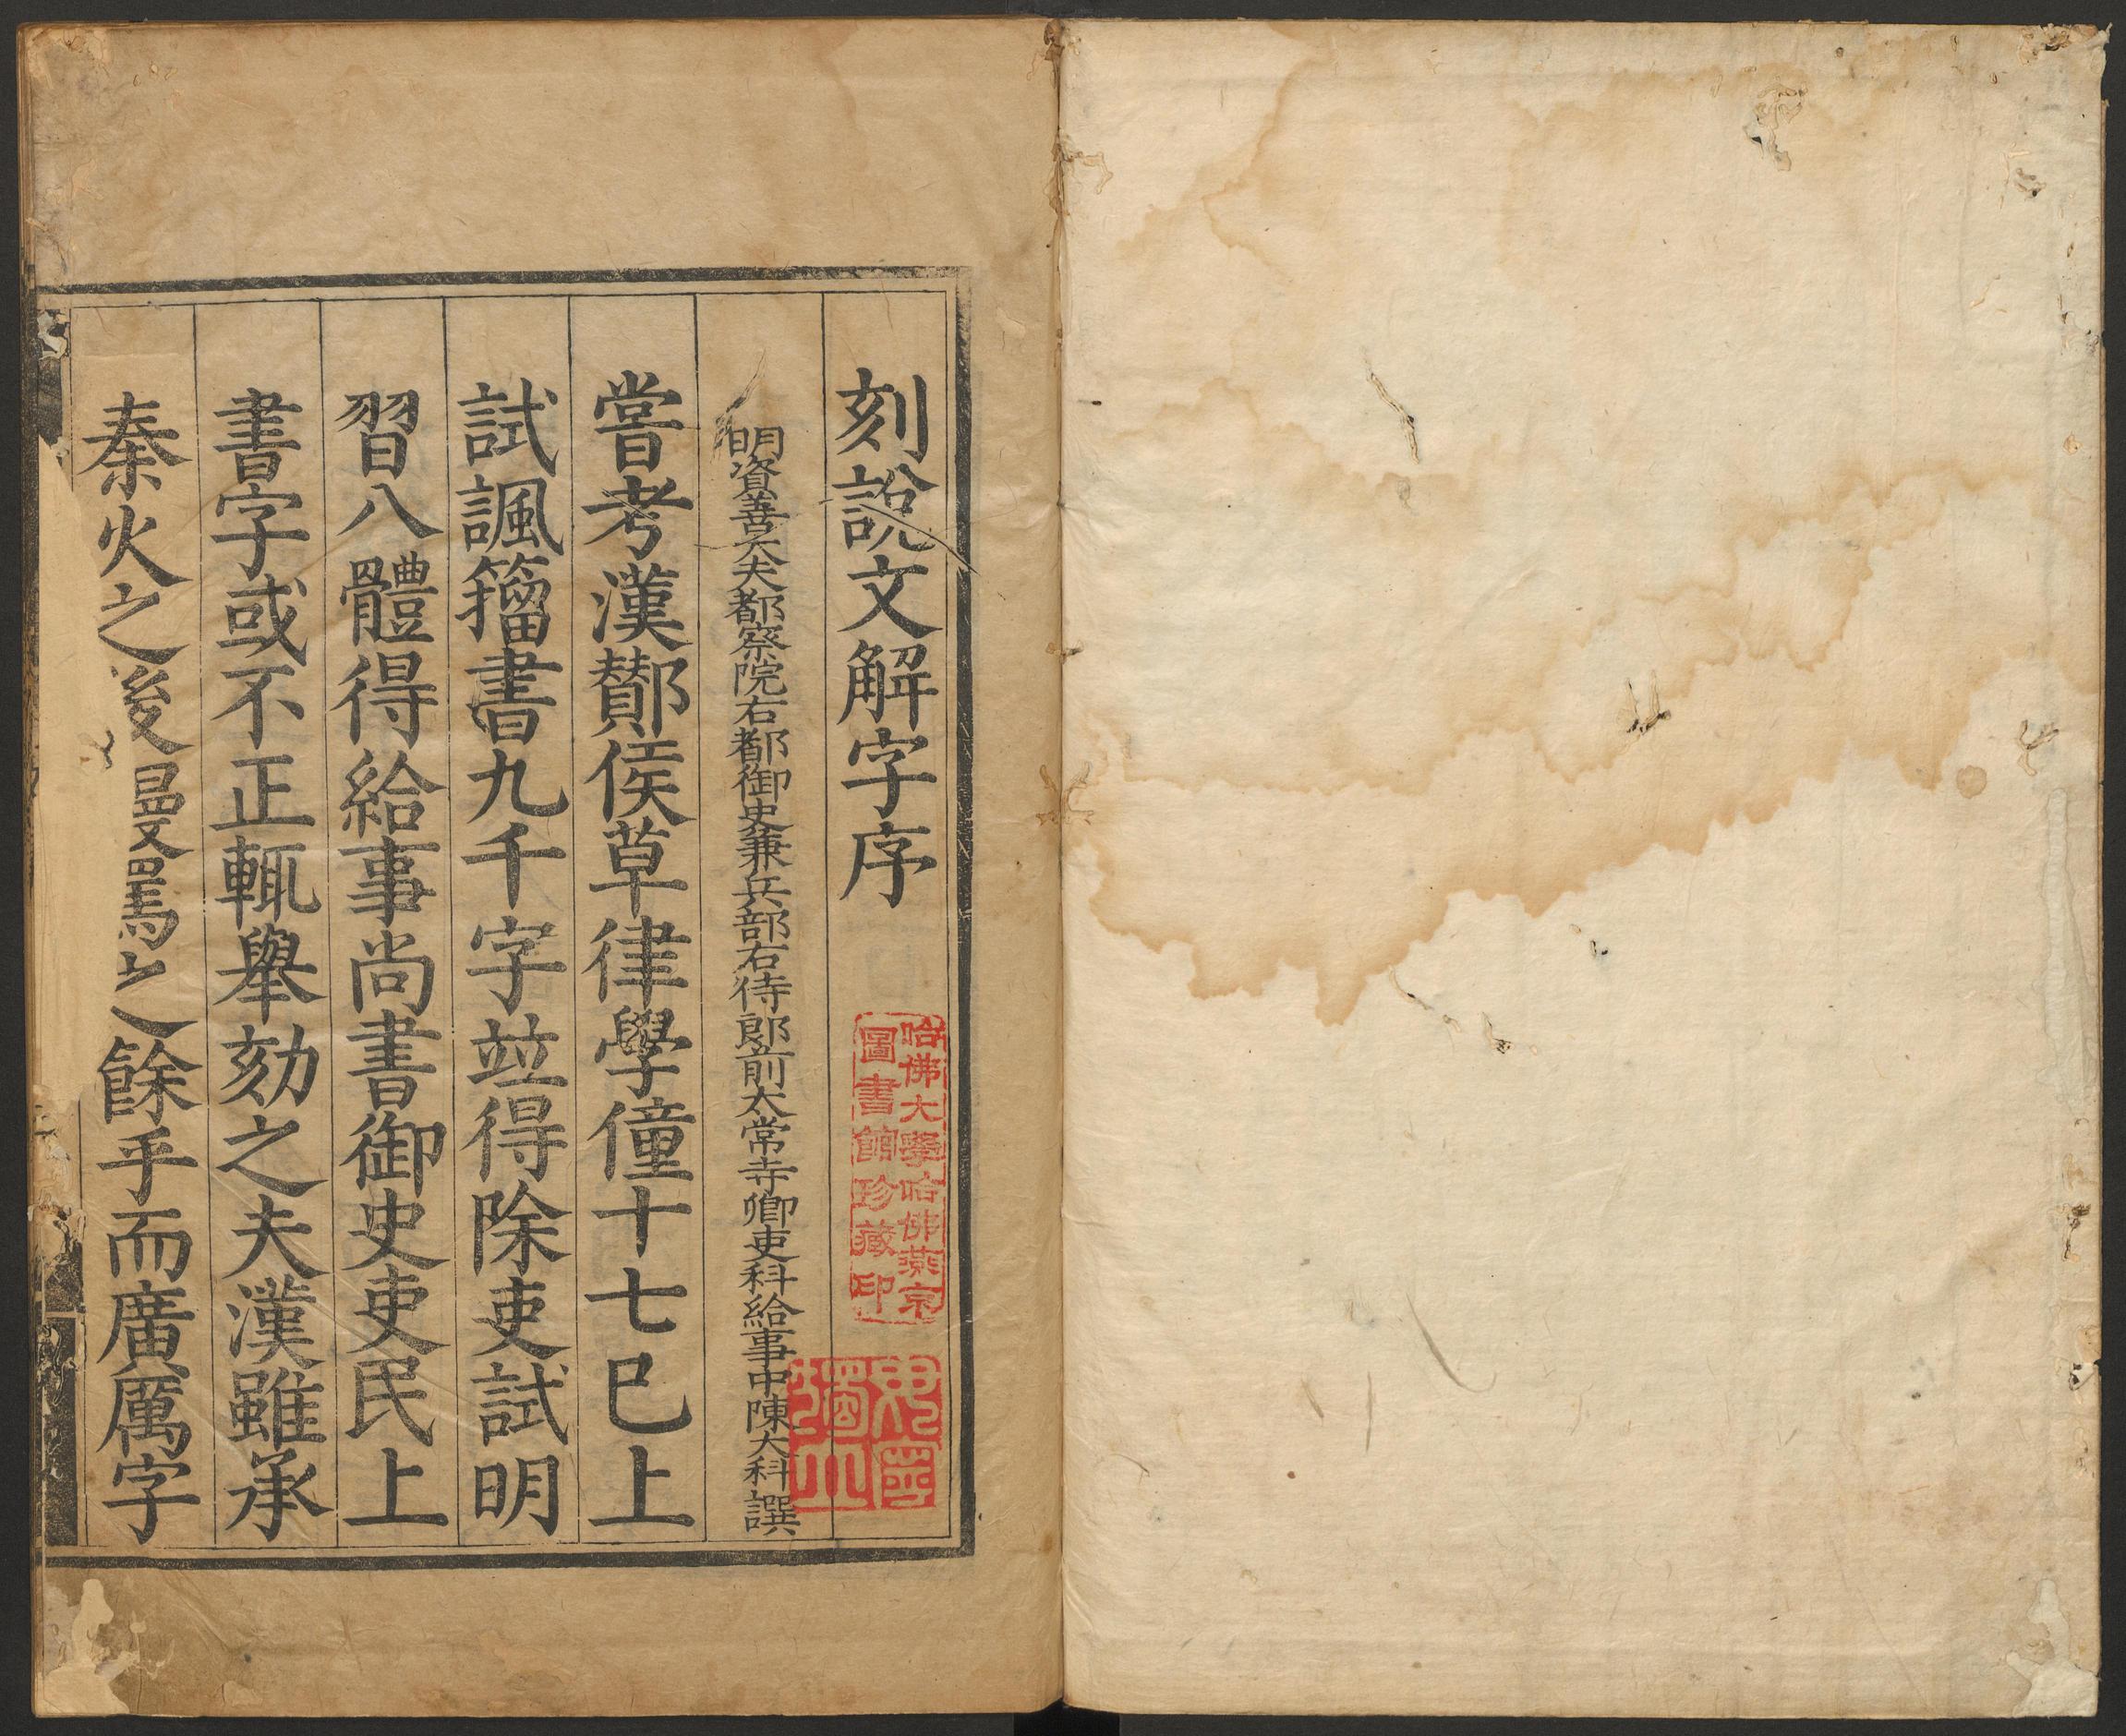 刻說文解字序
明資善大夫都察院右都御史兼兵部右侍郎前太常寺卿吏科給事中陳大科譔
嘗考漢酇侯草律學僮十七巳上
試諷籀書九千字竝得除吏試明
習八體得給事尚書御史吏民上
書字或不正輒舉劾之夫漢雖承
秦火之後嫚罵之餘乎而廣厲字
哈佛大學哈佛燕京
圖書館珍藏印